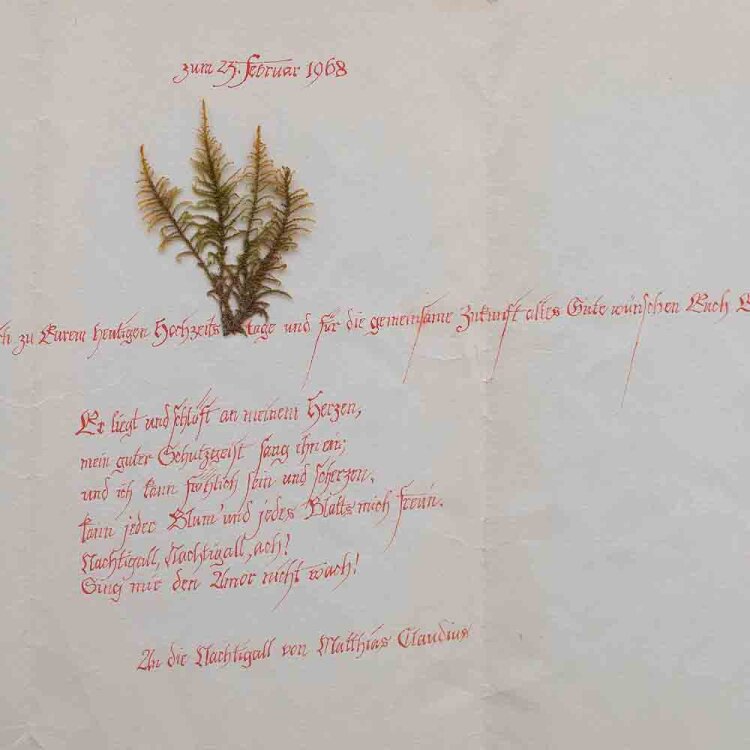 zum 23. Februar 1968
zu Eurem heutigen Hochzeitstage und für die gemeinsame Zukunft alles Gute wünschen Euch
Er liegt und schläft an meinem Herzen,
mein guter Schutzgeist sang ihn ein;
und ich kann fröhlich sein und scherzen,
kann jeder Blum' und jedes Blatts mich freun.
Nachtigall, Nachtigall, ach!
Sing mir den Amor nicht wach!
An die Nachtigall von Matthias Claudius